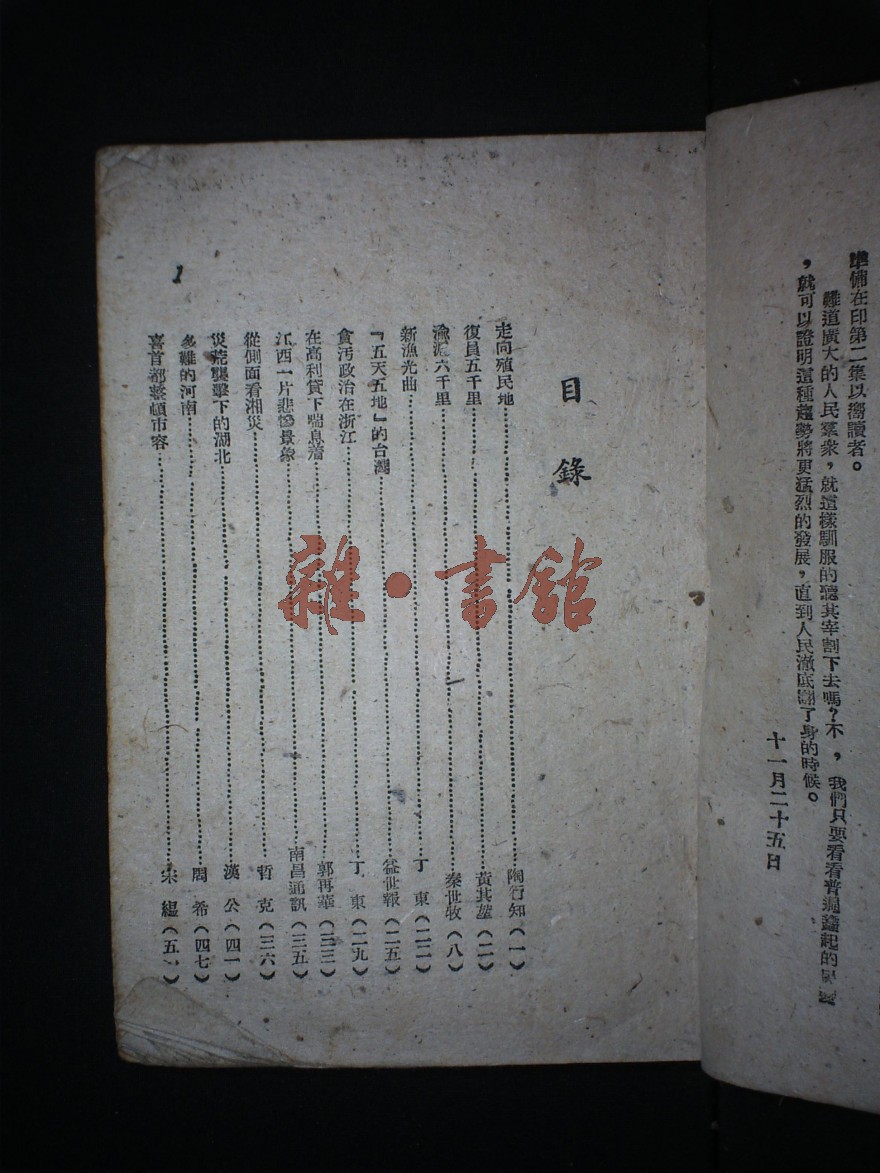 準備在印第二集以嚮讀者。
難道廣大的人民羣衆，就這樣馴服的聽其宰割下去嗎？不，我們只要看看普遍蠭起的
，就可以證明這種趨勢將更猛烈的發展，直到人民澈底翻了身的時候。
十一月二十五日
目錄
走向殖民地 陶行知（一）
復員五千里 黃其（二）
淪泥六千里 秦世牧（八）
新漁光曲 丁東（二二）
『五天五地』的台灣 益世報（二五）
貪汚政治在浙江 丁東（二九）
在高利貸下喘息着 郭再華（三三）
江西一片悲慘景象 南昌通訊（三五）
從側面看湘災 哲克（三六）
災荒襲擊下的湖北 漢公（四一）
多難的河南 周希（四七）
喜首都整頓市容 宋縕（五一）
1
雜·書館